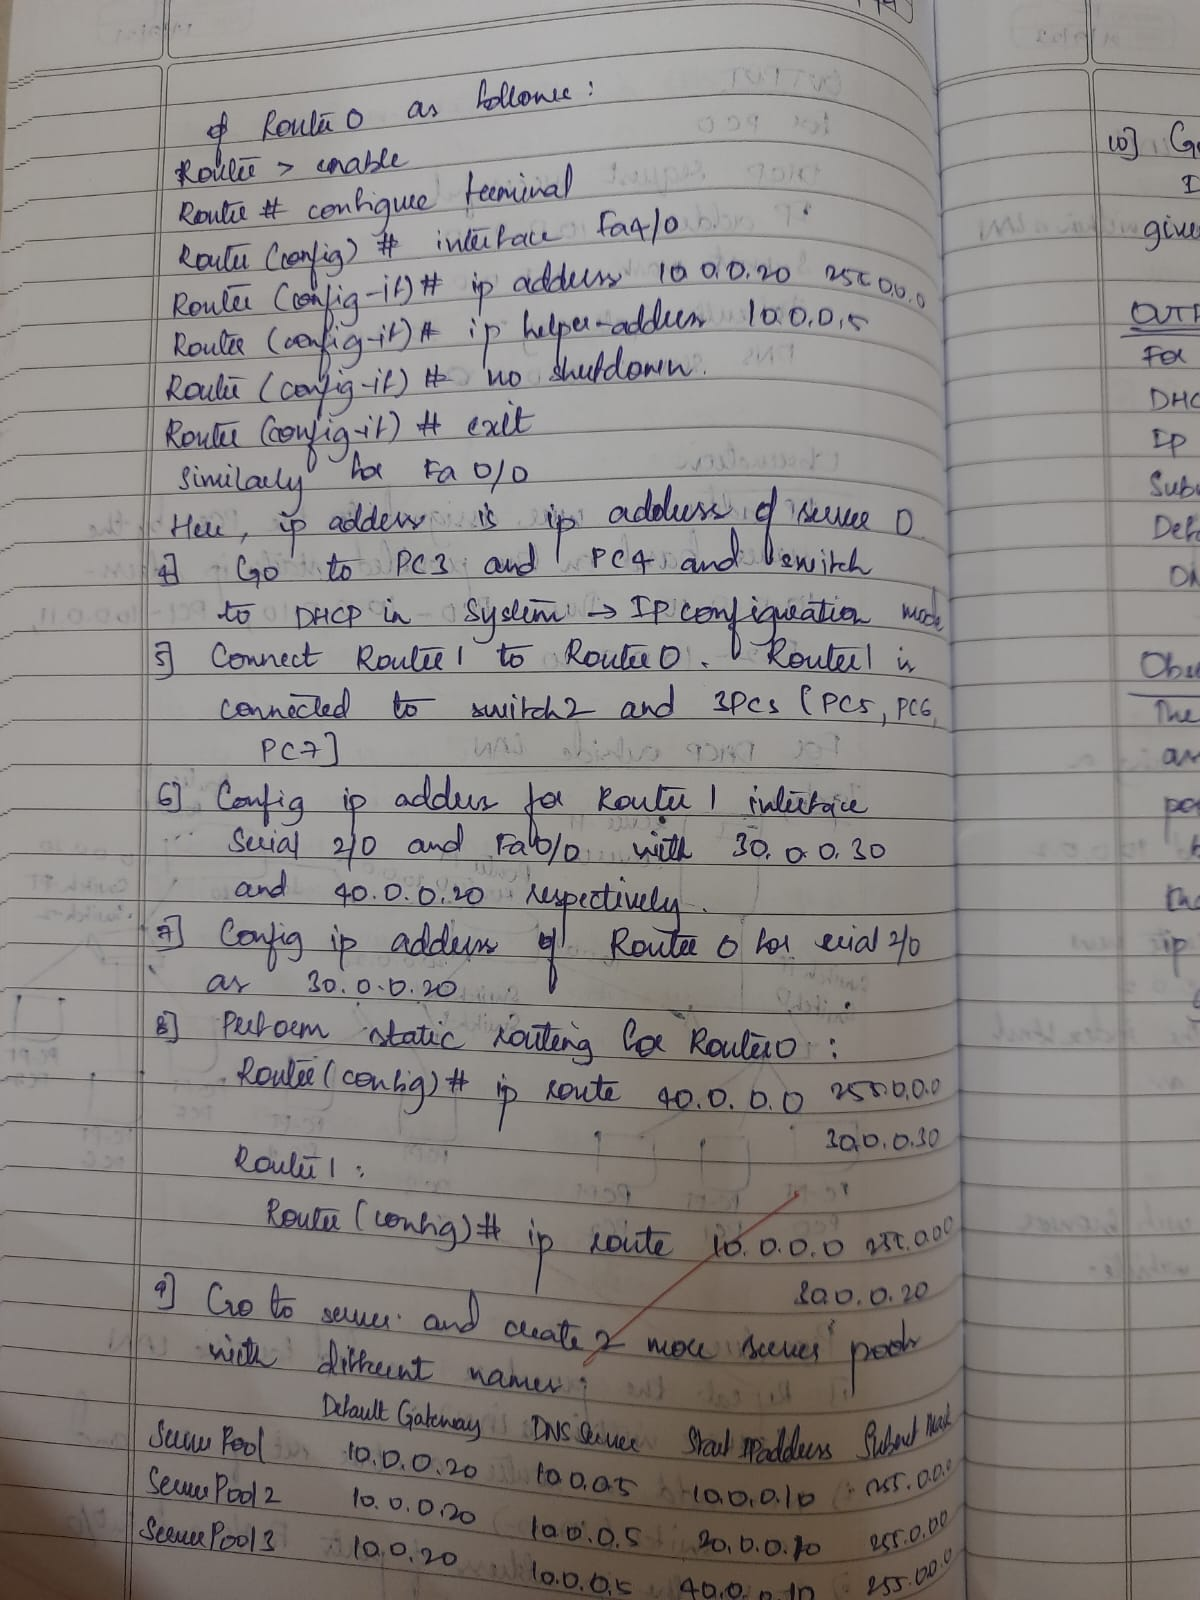 of Router 0 as follows:
Router > enable
Router # configure terminal
Router (config) # interface Fa4/0
Router (config-if) # ip address 10.0.0.20 255.0.0.0
Router (config-if) # ip helper-address 10.0.0.5
Router (config-if) # no shutdown.
Router (config-if) # exit
Similarly for Fa 0/0
Here, ip address is ip address of server 0.
4] Go to PC3 and PC4 and switch
to DHCP in System → IP configuration mode
5] Connect Router 1 to Router 0. Router 1 is
connected to switch2 and 3PCs [PC5, PC6,
PC7]
6] Config ip address for Router 1 interface
Serial 2/0 and Fa0/0 with 30.0.0.30
and 40.0.0.20 respectively.
7] Config ip address of Router 0 for serial 2/0
as 30.0.0.20
8] Perform static routing for Router0 :
Router (config) # ip route 40.0.0.0 255.0.0.0
30.0.0.30
Router 1 :
Router (config) # ip route 10.0.0.0 255.0.0.0
30.0.0.20
9] Go to server and create 2 more server pools
with different names:
Default Gateway DNS Server Start IP address Subnet Mask
Server Pool 10.0.0.20 10.0.0.5 10.0.0.10 255.0.0.0
Server Pool 2 10.0.0.20 10.0.0.5 20.0.0.10 255.0.0.0
Server Pool 3 10.0.20 10.0.0.5 40.0.0.10 255.0.0.0
10] Go
I
give
OUTP
For
DHC
Ip
Subn
Defa
DN
Obse
The
an
the
ip